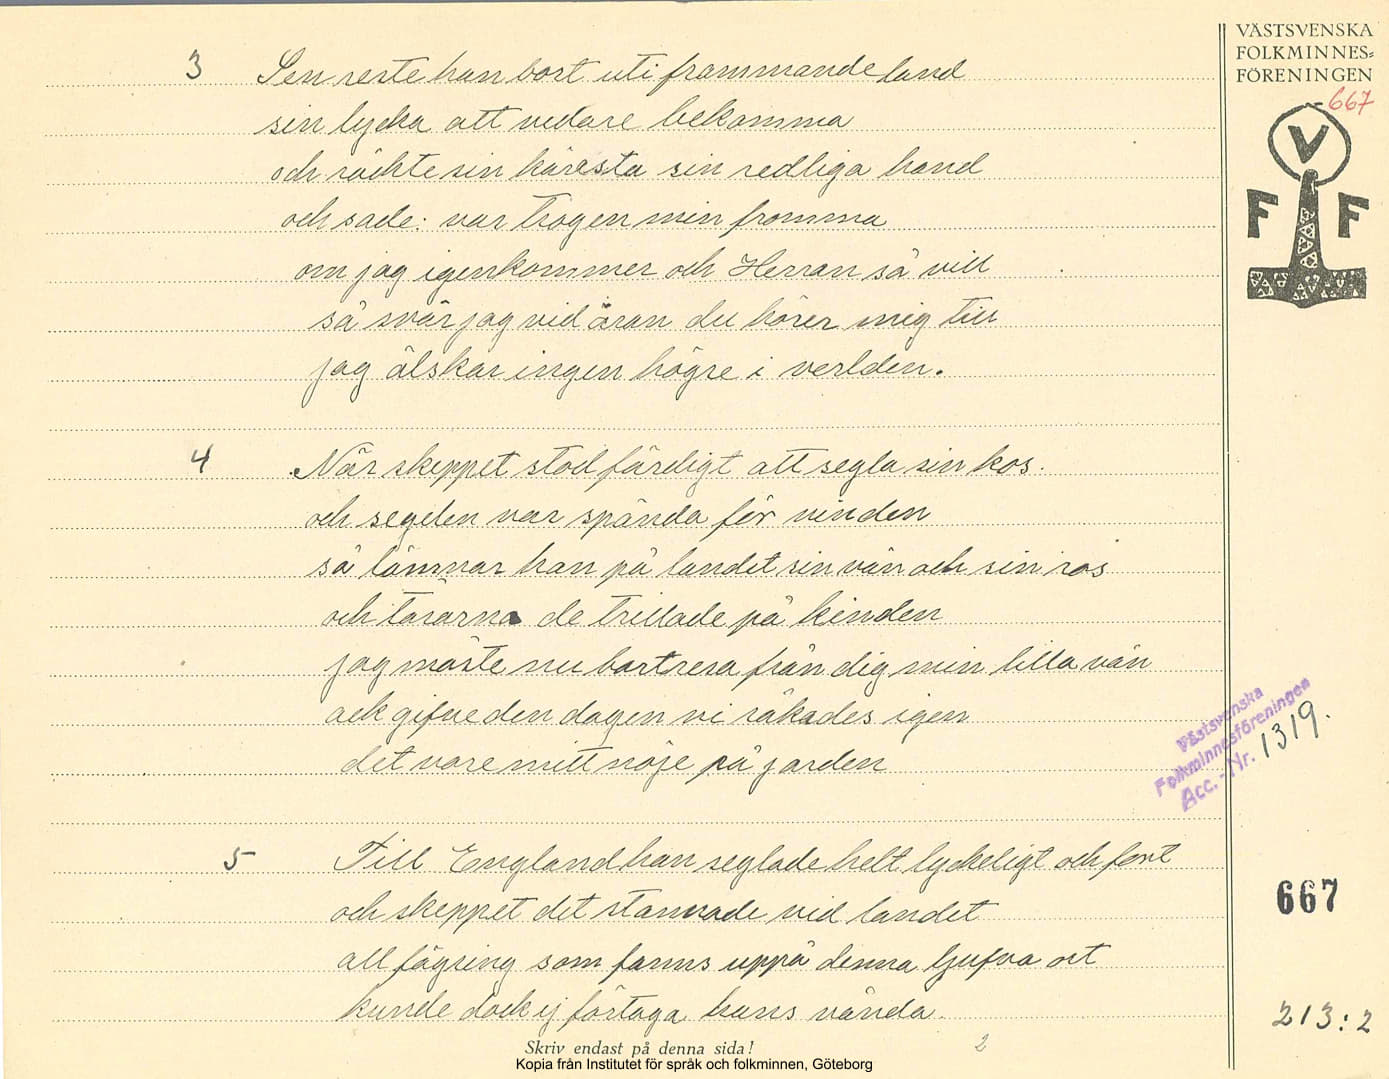 VÄSTSVENSKA
FOLKMINNES-
FÖRENINGEN
667
V
F F
3 Sen reste han bort uti frammande land
sin lycka att vidare bekomma
och räckte sin käresta sin redliga hand
och sade: var trogen min fromma
om jag igenkommer och Herran så vill
så svär jag vid äran du hörer mig till
jag älskar ingen högre i verlden.
4 När skeppet stod färdigt att segla sin kos.
och segelen var spända för vinden
så lämnar han på landet sin vän och sin ros
och tårarna de trillade på kinden
jag måste nu bortresa från dig min lilla vän
ack gifve den dagen vi råkades igen
det vore mitt nöje på jorden
Västsvenska
Folkminnesföreningen
Acc.-Nr. 1319.
5 Till England han seglade helt lyckeligt och fort
och skeppet det stannade vid landet
all fägring som fanns uppå denna ljufva ort
kunde dock ej förtaga hans vånda.
667
213:2
Skriv endast på denna sida!
2
Kopia från Institutet för språk och folkminnen, Göteborg